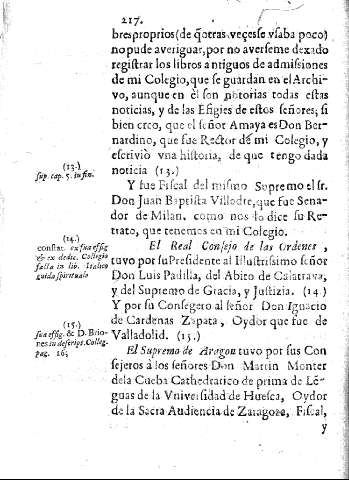 217.
bres proprios (de q̃ otras veçes se vsaba poco)
no pude averiguar, por no averseme dexado
registrar los libros antiguos de admissiones
de mi Colegio, que se guardan en el Archi-
vo, aunque en èl son notorias todas estas
noticias, y de las Efigies de estos señores; si
bien creo, que el señor Amaya es Don Ber-
nardino, que fue Rector de mi Colegio, y
escriviò vna historia, de que tengo dada
noticia (13.)
(13.)
sup. cap. 5. in fin.
Y fue Fiscal del mismo Supremo el sr.
Don Juan Baptista Villodre, que fue Sena-
dor de Milan, como nos lo dice su Re-
trato, que tenemos en mi Colegio.
El Real Consejo de las Ordenes,
tuvo por su Presidente al Illustrissimo señor
Don Luis Padilla, del Abito de Calatrava,
y del Supremo de Gracia, y Justizia. (14.)
(14.)
constat ex sua effig
& ex dedic. Collegio
facta in lib. Italico
guida spirituale
Y por su Consegero al señor Don Ignacio
de Cardenas Zapata, Oydor que fue de
Valladolid. (15.)
(15.)
sua effig. & D. Brio-
nes in descrips. Colleg.
pag. 16;
El Supremo de Aragon tuvo por sus Con
sejeros à los señores Don Martin Monter
de la Cueba Cathedratico de prima de Lẽ-
guas de la Vniversidad de Huesca, Oydor
de la Sacra Audiencia de Zaragoza, Fiscal,
y